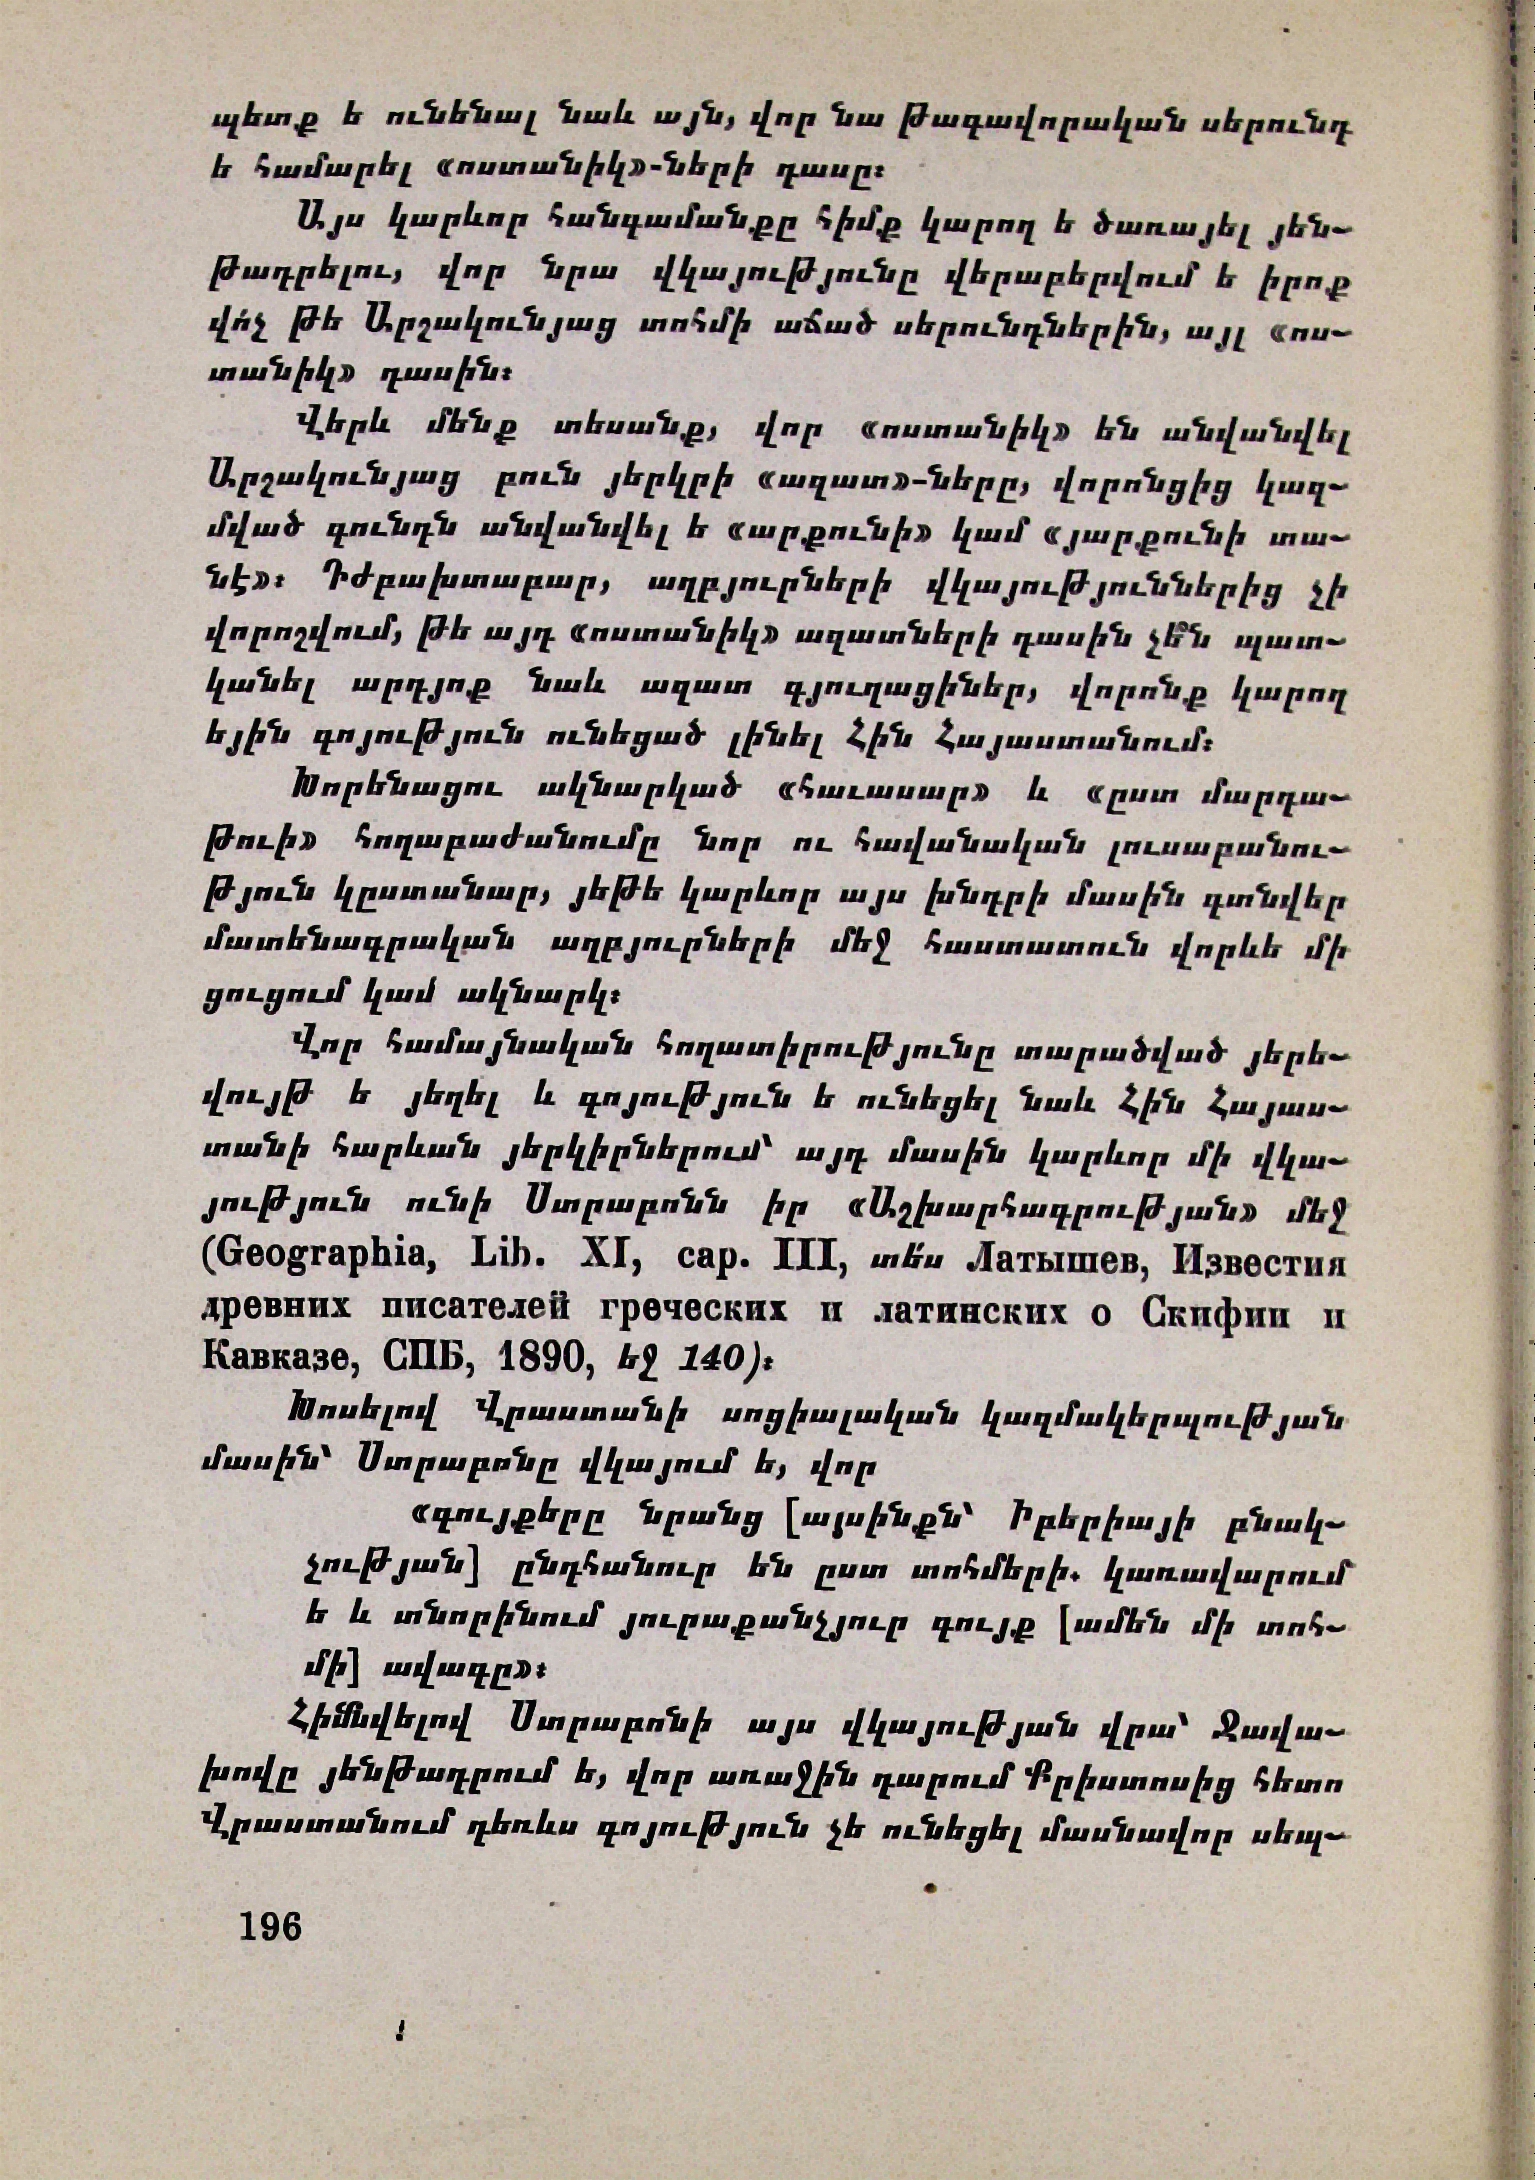 պետք ե ունենալ նաև այն, վոր նա թագավորական սերունդ
ե համարել «ոստանիկ»-ների դասը։
Այս կարևոր հանգամանքը հիմք կարող ե ծառայել յեն-
թադրելու, վոր նրա վկայությունը վերաբերվում ե իրոք
վո՛չ թե Արշակունյաց տոհմի աճած սերունդներին, այլ «ոս-
տանիկ» դասին։
Վերև մենք տեսանք, վոր «ոստանիկ» են անվանվել
Արշակունյաց բուն յերկրի «ազատ»-ները, վորոնցից կազ-
մված գունդն անվանվել ե «արքունի» կամ «յարքունի տա-
նէ»։ Դժբախտաբար, աղբյուրների վկայություններից չի
վորոշվում, թե այդ «ոստանիկ» ազատների դասին չե՞ն պատ-
կանել արդյոք նաև ազատ գյուղացիներ, վորոնք կարող
եյին գոյություն ունեցած լինել Հին Հայաստանում։
Խորենացու ակնարկած «հաւասար» և «ըստ մարդա-
թուի» հողաբաժանումը նոր ու հավանական լուսաբանու-
թյուն կըստանար, յեթե կարևոր այս խնդրի մասին գտնվեր
մատենագրական աղբյուրների մեջ հաստատուն վորևե մի
ցուցում կամ ակնարկ։
Վոր համայնական հողատիրությունը տարածված յերե-
վույթ ե յեղել և գոյություն ե ունեցել նաև Հին Հայաս-
տանի հարևան յերկիրներում՝ այդ մասին կարևոր մի վկա-
յություն ունի Ստրաբոնն իր «Աշխարհագրության» մեջ
(Geographia, Lib. XI, cap. III, տե՛ս Латышев, Известия
древних писателей греческих и латинских о Скифии и
Кавказе, СПБ, 1890, եջ 140)։
Խոսելով Վրաստանի սոցիալական կազմակերպության
մասին՝ Ստրաբոնը վկայում ե, վոր
«գույքերը նրանց [այսինքն՝ Իբերիայի բնակ-
չության] ընդհանուր են ըստ տոհմերի. կառավարում
ե և տնորինում յուրաքանչյուր գույք [ամեն մի տոհ-
մի] ավագը»։
Հիմնվելով Ստրաբոնի այս վկայության վրա՝ Ջավա-
խովը յենթադրում ե, վոր առաջին դարում Քրիստոսից հետո
Վրաստանում դեռևս գոյություն չե ունեցել մասնավոր սեպ-
196